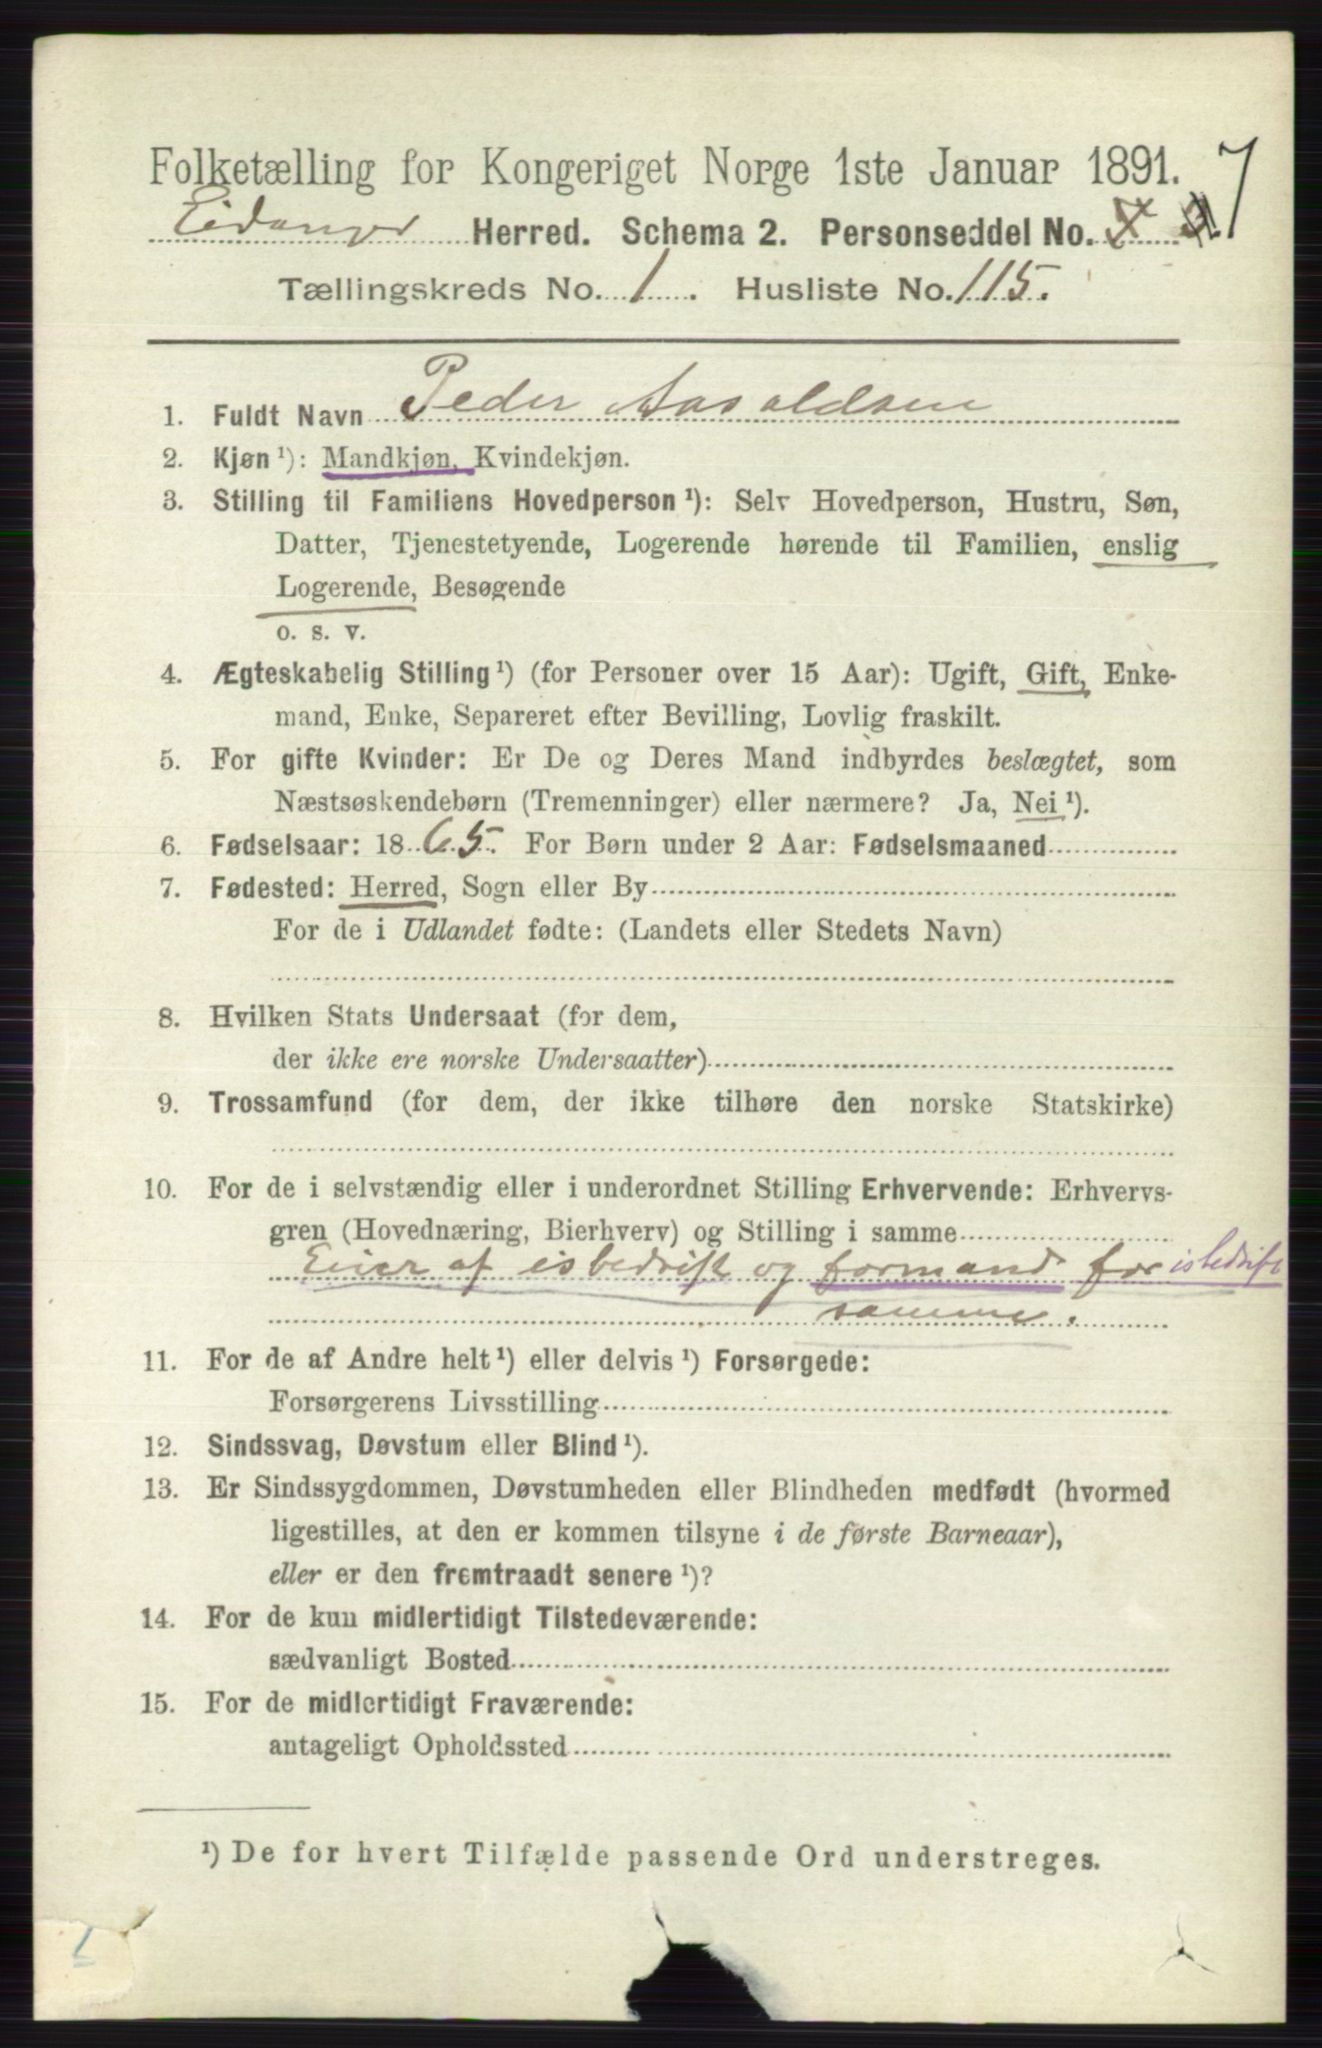 Folketælling for Kongeriget Norge 1ste Januar 1891.
7
Eidanger Herred. Schema 2. Personseddel No.
Tællingskreds No. 1. Husliste No. 115.
1. Fuldt Navn Peder Aasoldsen
2. Kjøn ¹): Mandkjøn, Kvindekjøn.
3. Stilling til Familiens Hovedperson ¹): Selv Hovedperson, Hustru, Søn,
Datter, Tjenestetyende, Logerende hørende til Familien, enslig
Logerende, Besøgende
o. s. v.
4. Ægteskabelig Stilling ¹) (for Personer over 15 Aar): Ugift, Gift, Enke-
mand, Enke, Separeret efter Bevilling, Lovlig fraskilt.
5. For gifte Kvinder: Er De og Deres Mand indbyrdes beslægtet, som
Næstsøskendebørn (Tremenninger) eller nærmere? Ja, Nei ¹).
6. Fødselsaar: 1865. For Børn under 2 Aar: Fødselsmaaned
7. Fødested: Herred, Sogn eller By
For de i Udlandet fødte: (Landets eller Stedets Navn)
8. Hvilken Stats Undersaat (for dem,
der ikke ere norske Undersaatter)
9. Trossamfund (for dem, der ikke tilhøre den norske Statskirke)
10. For de i selvstændig eller i underordnet Stilling Erhvervende: Erhvervs-
gren (Hovednæring, Bierhverv) og Stilling i samme
Eier af isbedrift og formand for isbedrift
samme.
11. For de af Andre helt ¹) eller delvis ¹) Forsørgede:
Forsørgerens Livsstilling
12. Sindssvag, Døvstum eller Blind ¹).
13. Er Sindssygdommen, Døvstumheden eller Blindheden medfødt (hvormed
ligestilles, at den er kommen tilsyne i de første Barneaar),
eller er den fremtraadt senere ¹)?
14. For de kun midlertidigt Tilstedeværende:
sædvanligt Bosted
15. For de midlertidigt Fraværende:
antageligt Opholdssted
¹) De for hvert Tilfælde passende Ord understreges.